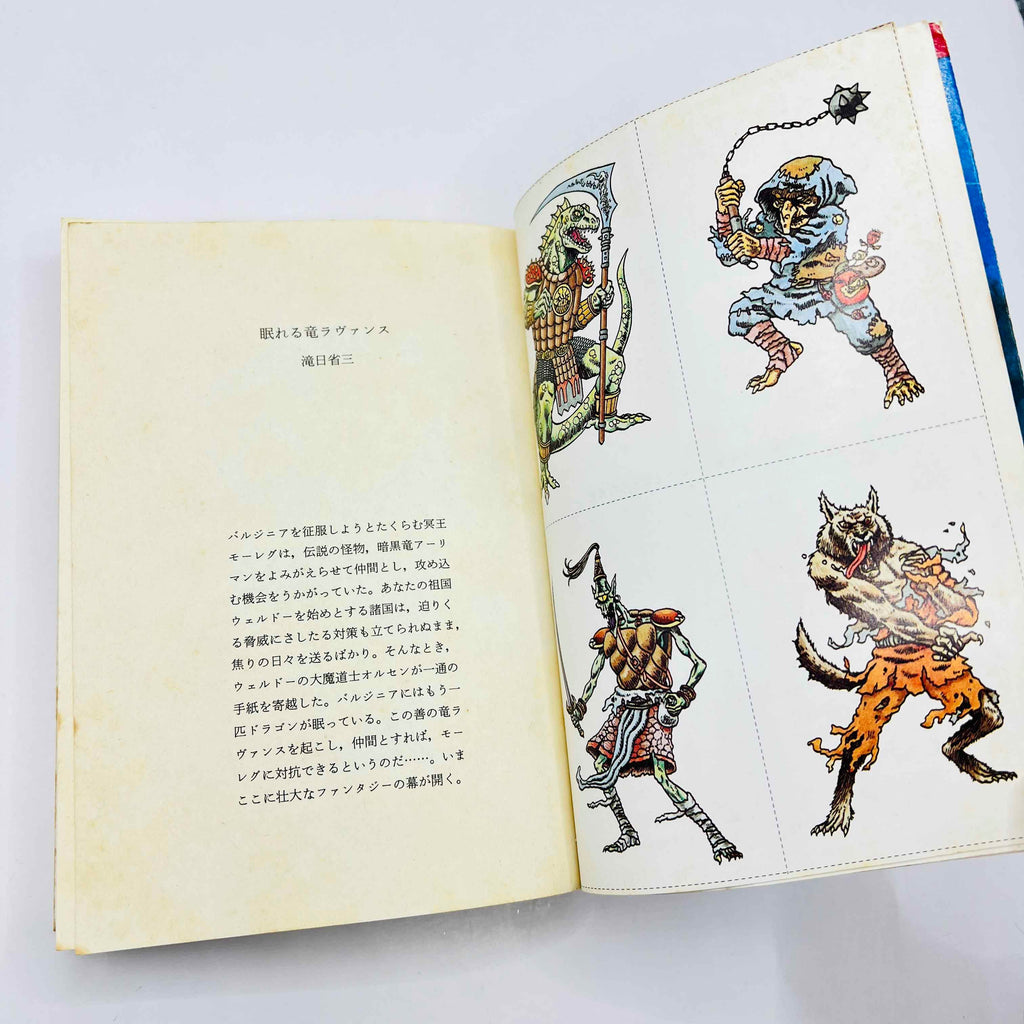 眠れる竜ラヴァンス
滝日省三
バルジニアを征服しようとたくらむ冥王
モーレグは，伝説の怪物，暗黒竜アーリ
マンをよみがえらせて仲間とし，攻め込
む機会をうかがっていた。あなたの祖国
ウェルドーを始めとする諸国は，迫りく
る脅威にさしたる対策も立てられぬまま，
焦りの日々を送るばかり。そんなとき，
ウェルドーの大魔道士オルセンが一通の
手紙を寄越した。バルジニアにはもう一
匹ドラゴンが眠っている。この善の竜ラ
ヴァンスを起こし，仲間とすれば，モー
レグに対抗できるというのだ……。いま
ここに壮大なファンタジーの幕が開く。